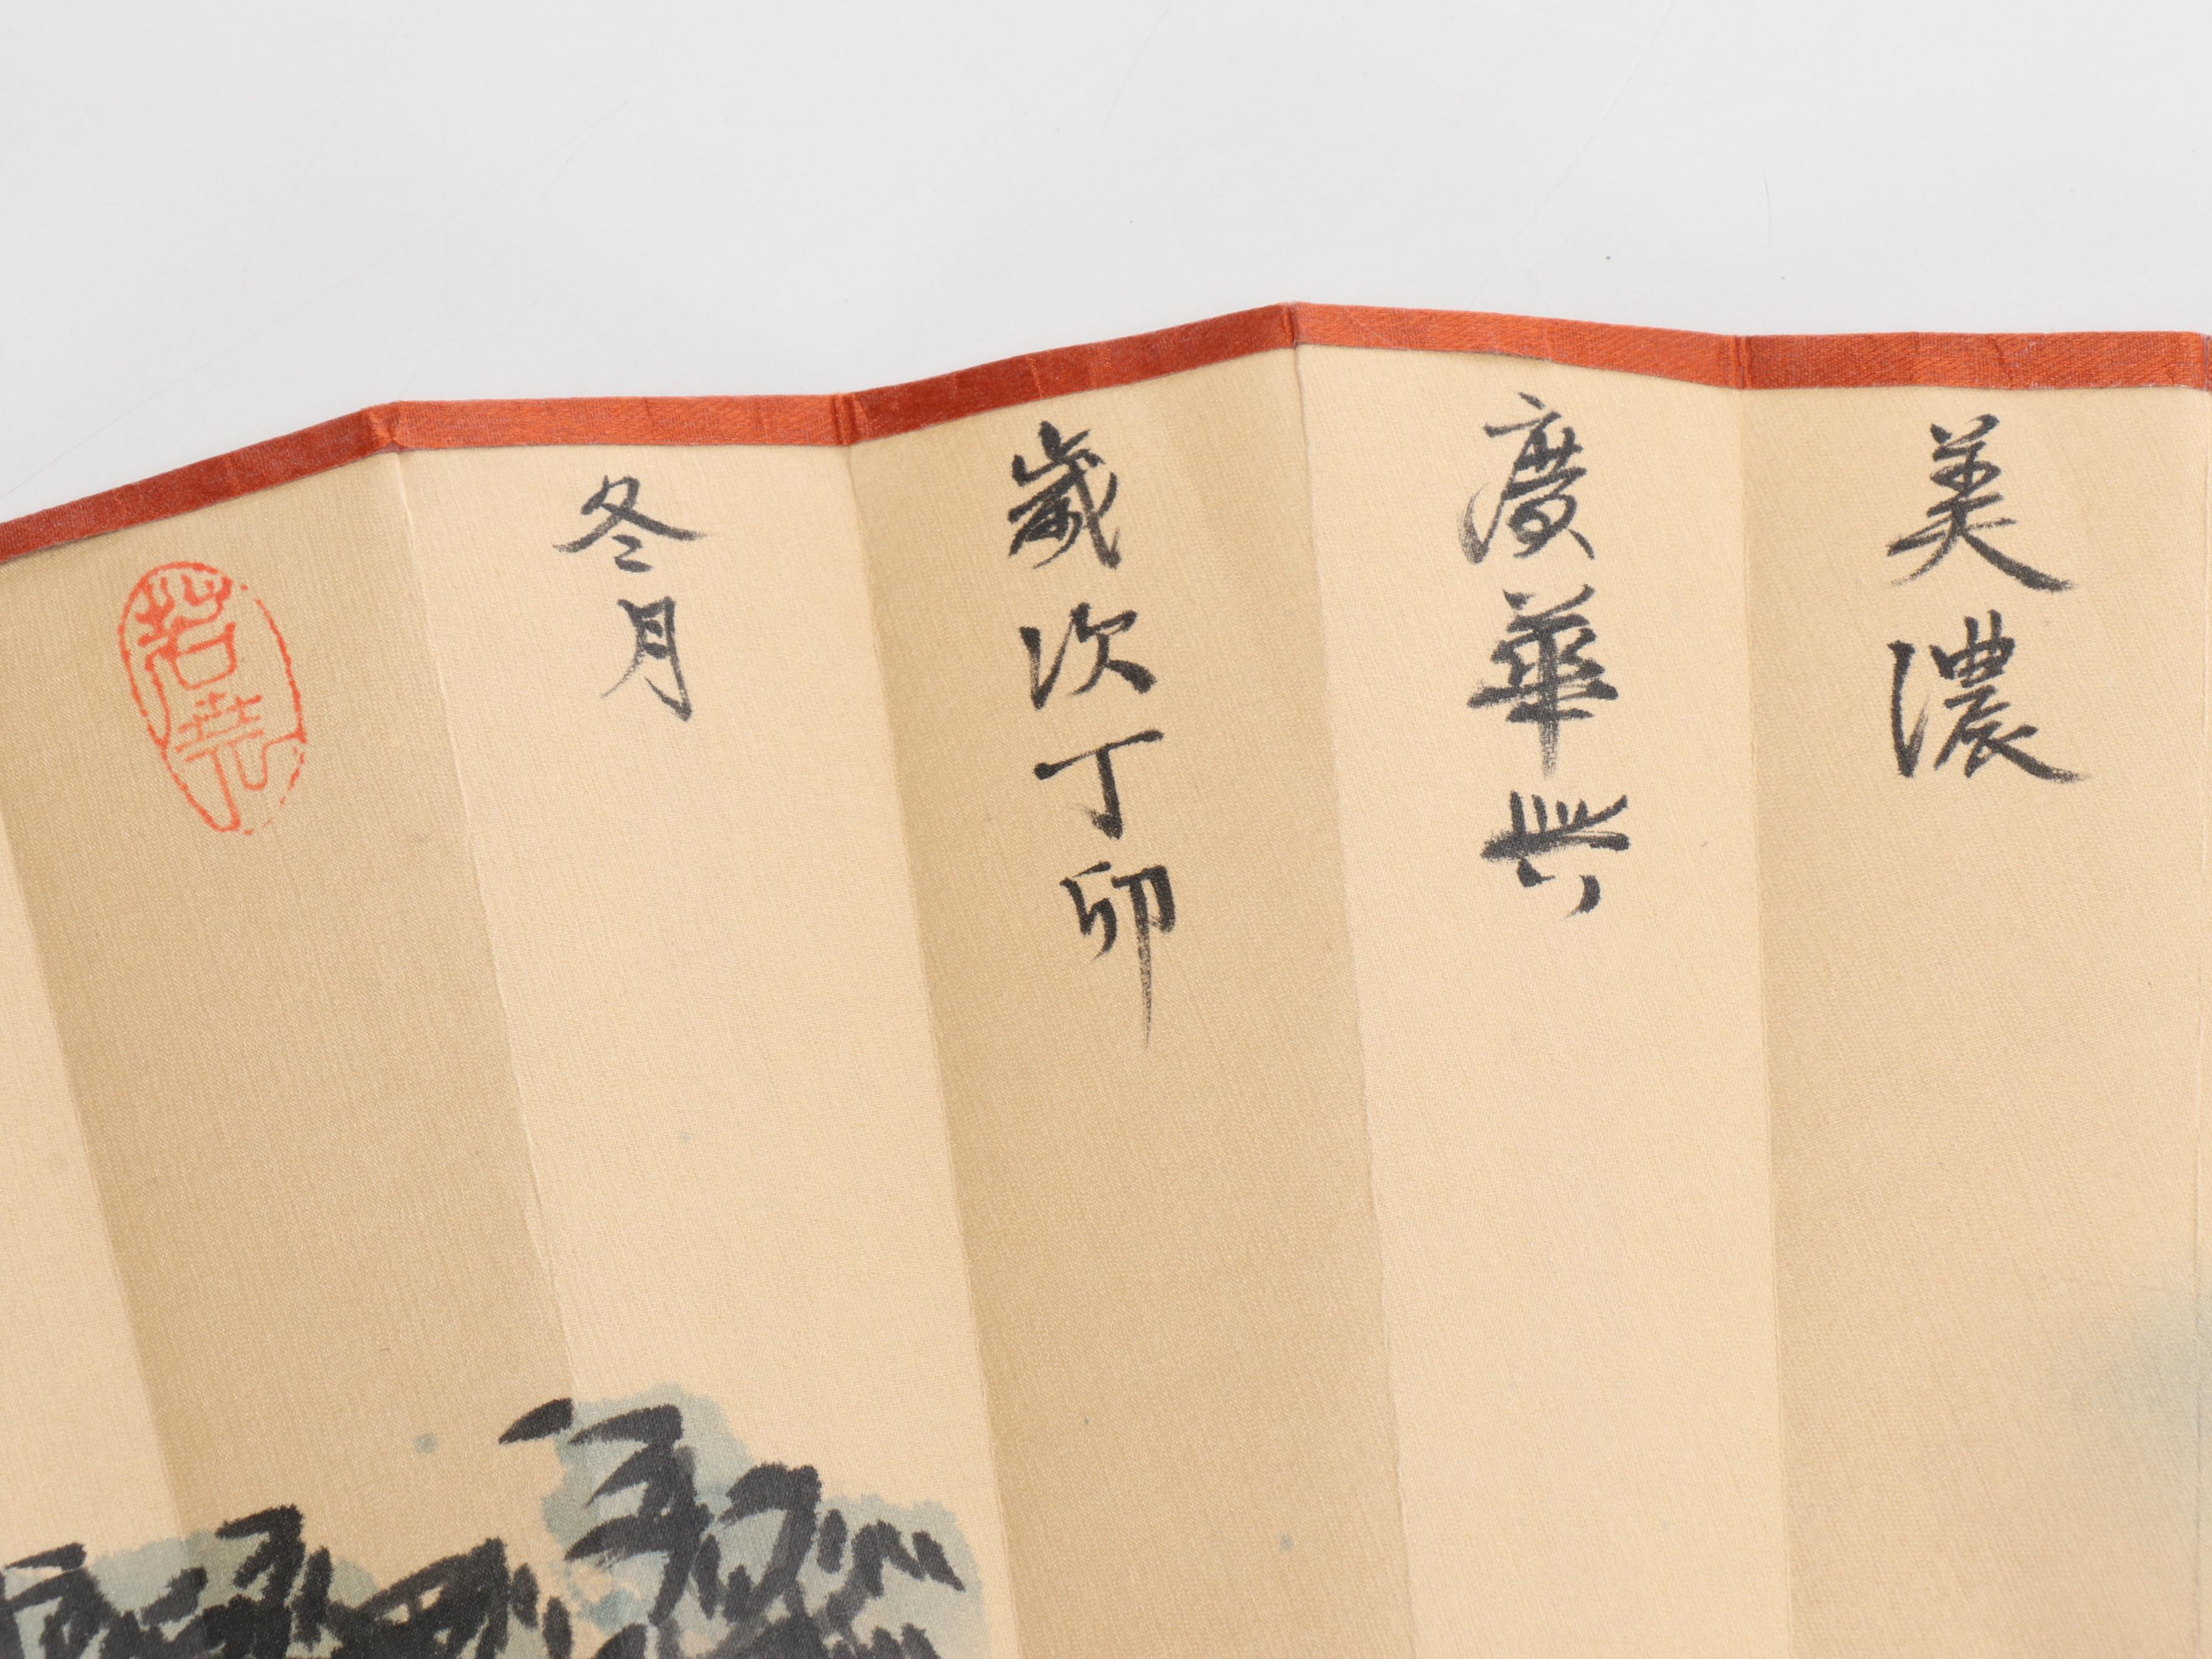 美濃
廣華興
歲次丁卯
冬月
若